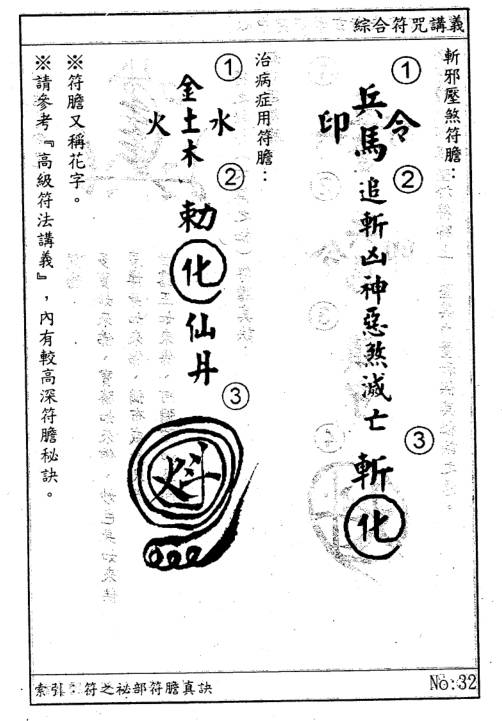 綜合符咒講義
斬邪壓煞符膽：
①
兵馬
印
令
②
追斬凶神惡煞滅亡
③
斬化
治病症用符膽：
①
金
火土水
木
②
勅化仙丹
③
※符膽又稱花字。
※請參考『高級符法講義』，內有較高深符膽秘訣。
索引：符之祕部符膽真訣
No:32